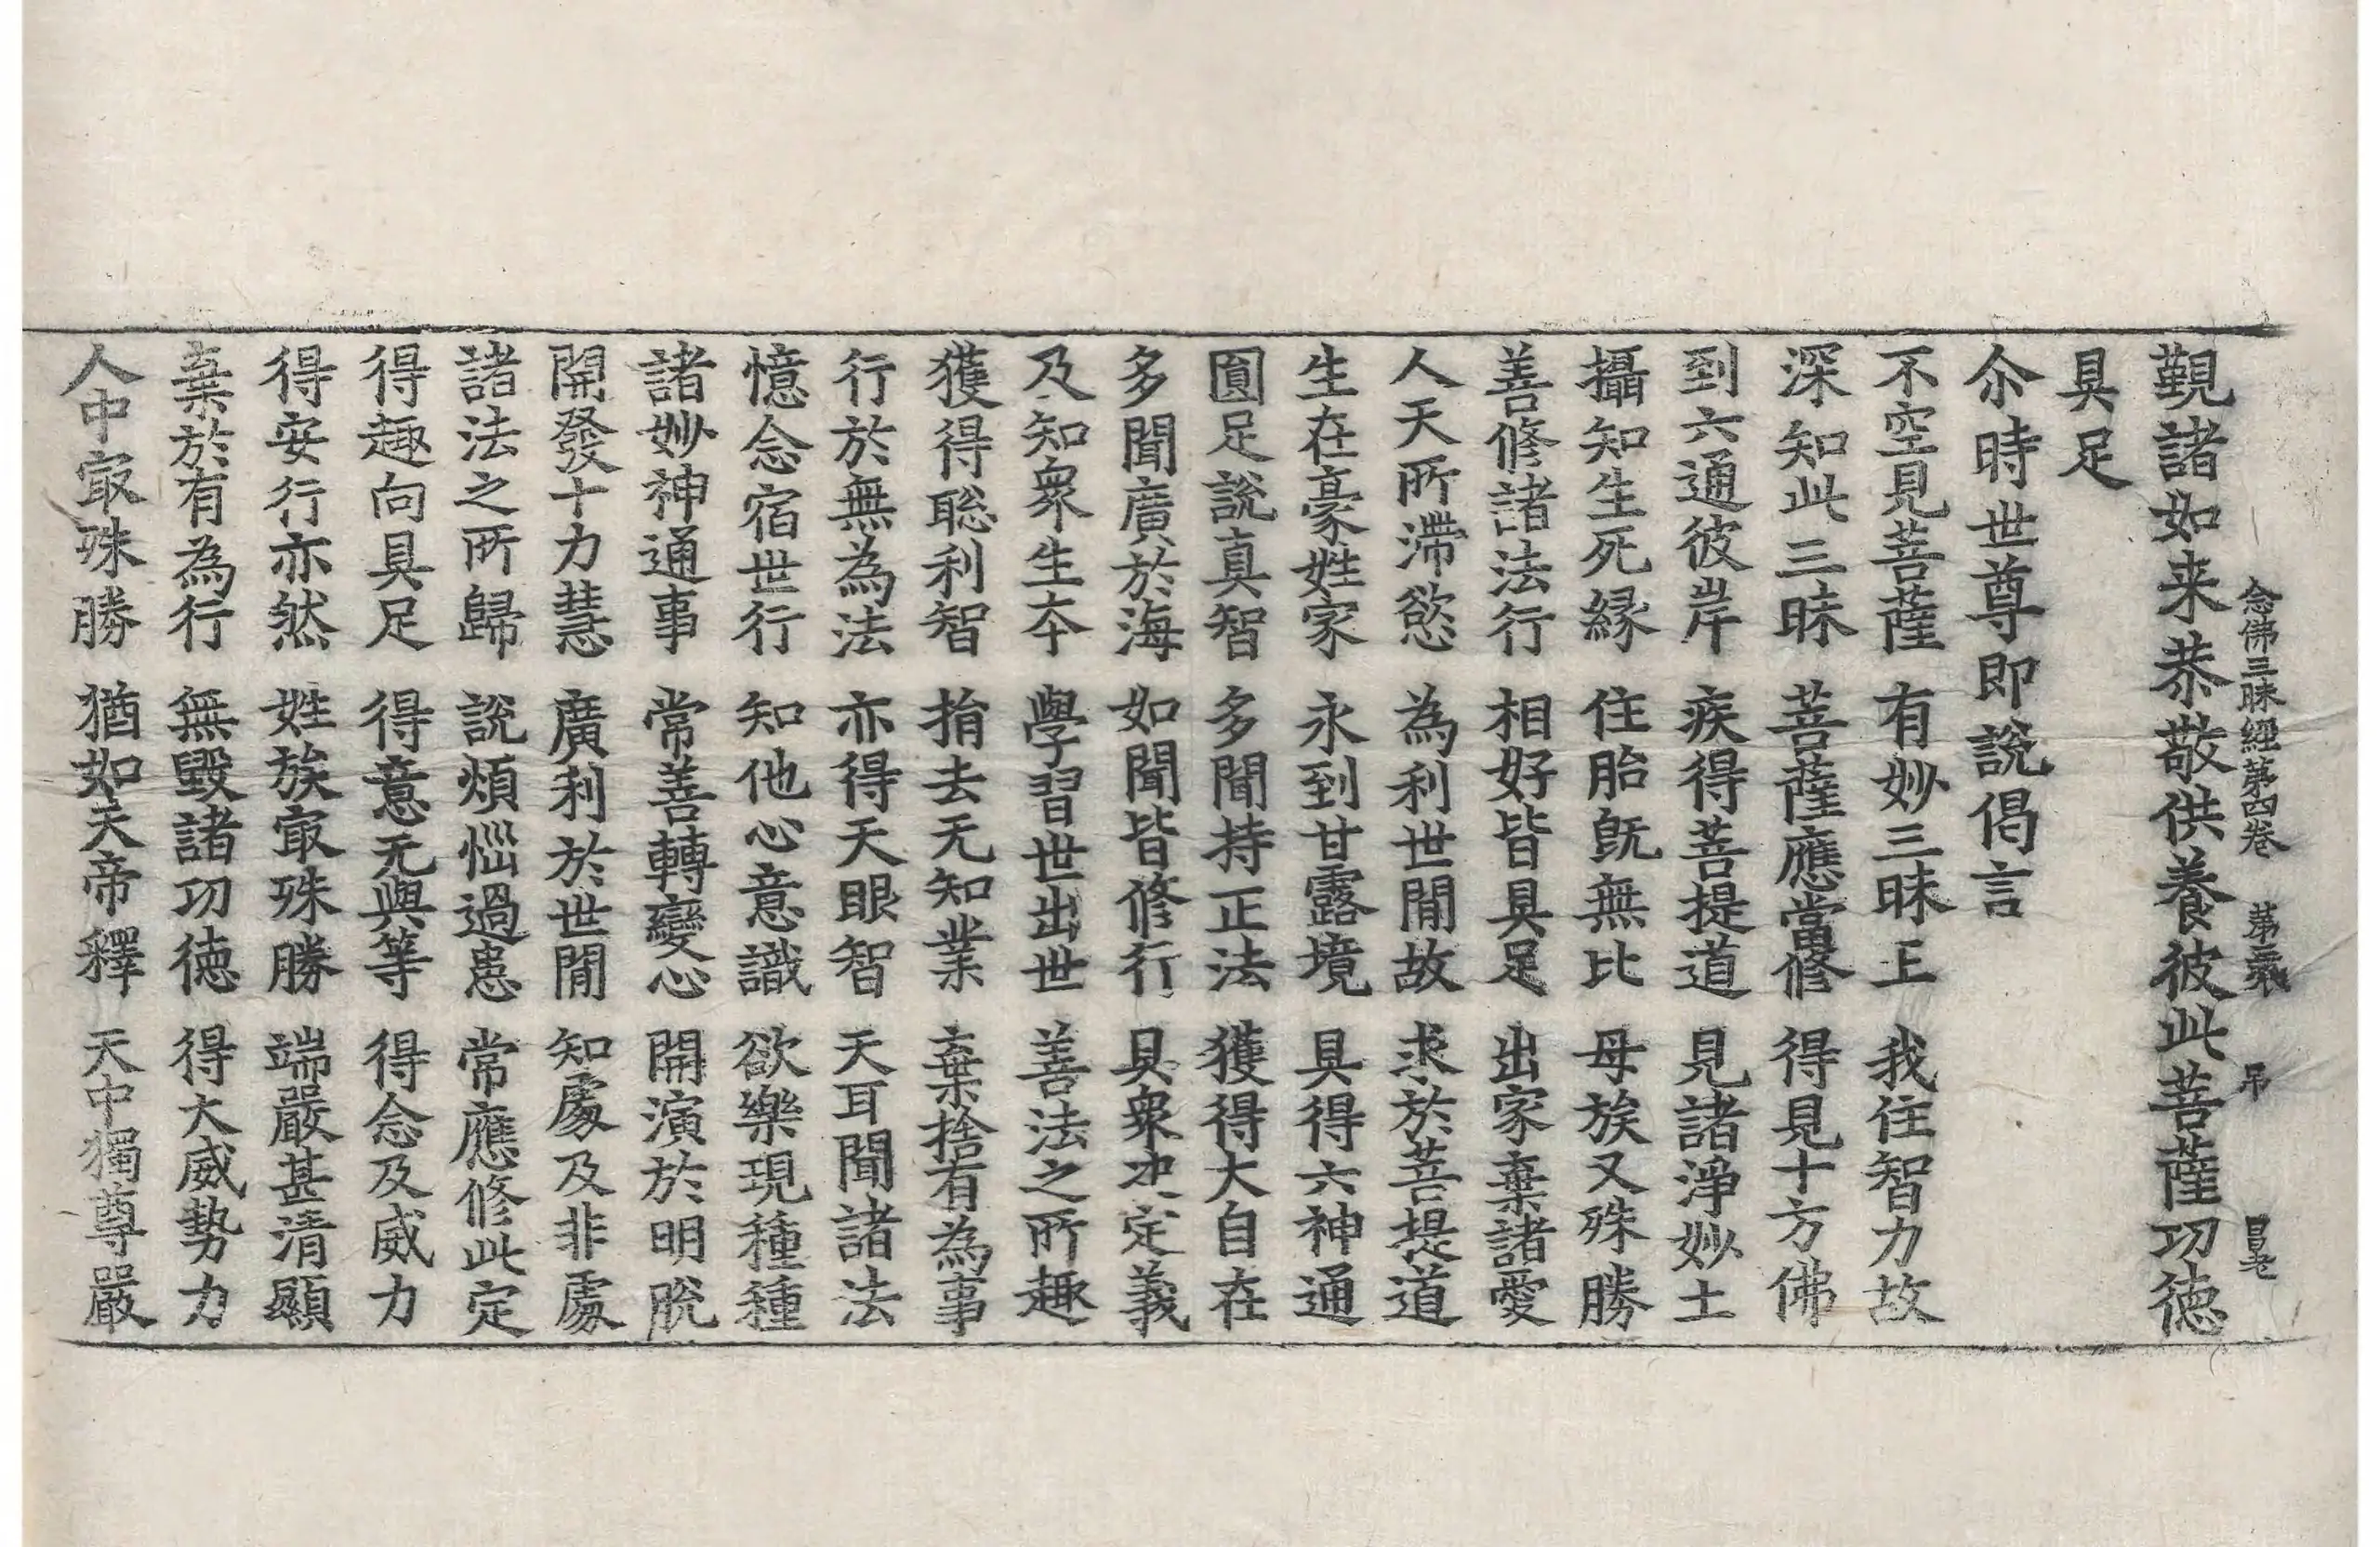 念佛三昧經第四卷 第三張 吊 昌老
覲諸如来恭敬供養彼此菩薩功徳
具足
尒時世尊即說偈言
不空見菩薩 有妙三昧上 我住智力故
深知此三昧 菩薩應當修 得見十方佛
到六通彼岸 疾得菩提道 見諸淨妙土
攝知生死緣 住胎既無比 母族又殊勝
善修諸法行 相好皆具足 出家棄諸愛
人天所滯慾 為利世閒故 求於菩提道
生在豪姓家 永到甘露境 具得六神通
圎足說真智 多聞持正法 獲得大自在
多聞廣於海 如聞皆修行 具衆决定義
及知衆生夲 學習世出世 善法之所趣
獲得聡利智 捐去无知業 棄捨有為事
行於無為法 亦得天眼智 天耳聞諸法
憶念宿世行 知他心意識 欲樂現種種
諸妙神通事 常善轉變心 開演於明脫
開發十力慧 廣利於世閒 知處及非處
諸法之所歸 說煩惱過患 常應修此定
得趣向具足 得意无與等 得念及威力
得安行亦然 姓族㝡殊勝 端嚴甚清顯
棄於有為行 無毀諸功徳 得大威勢力
人中㝡殊勝 猶如天帝釋 天中獨尊嚴